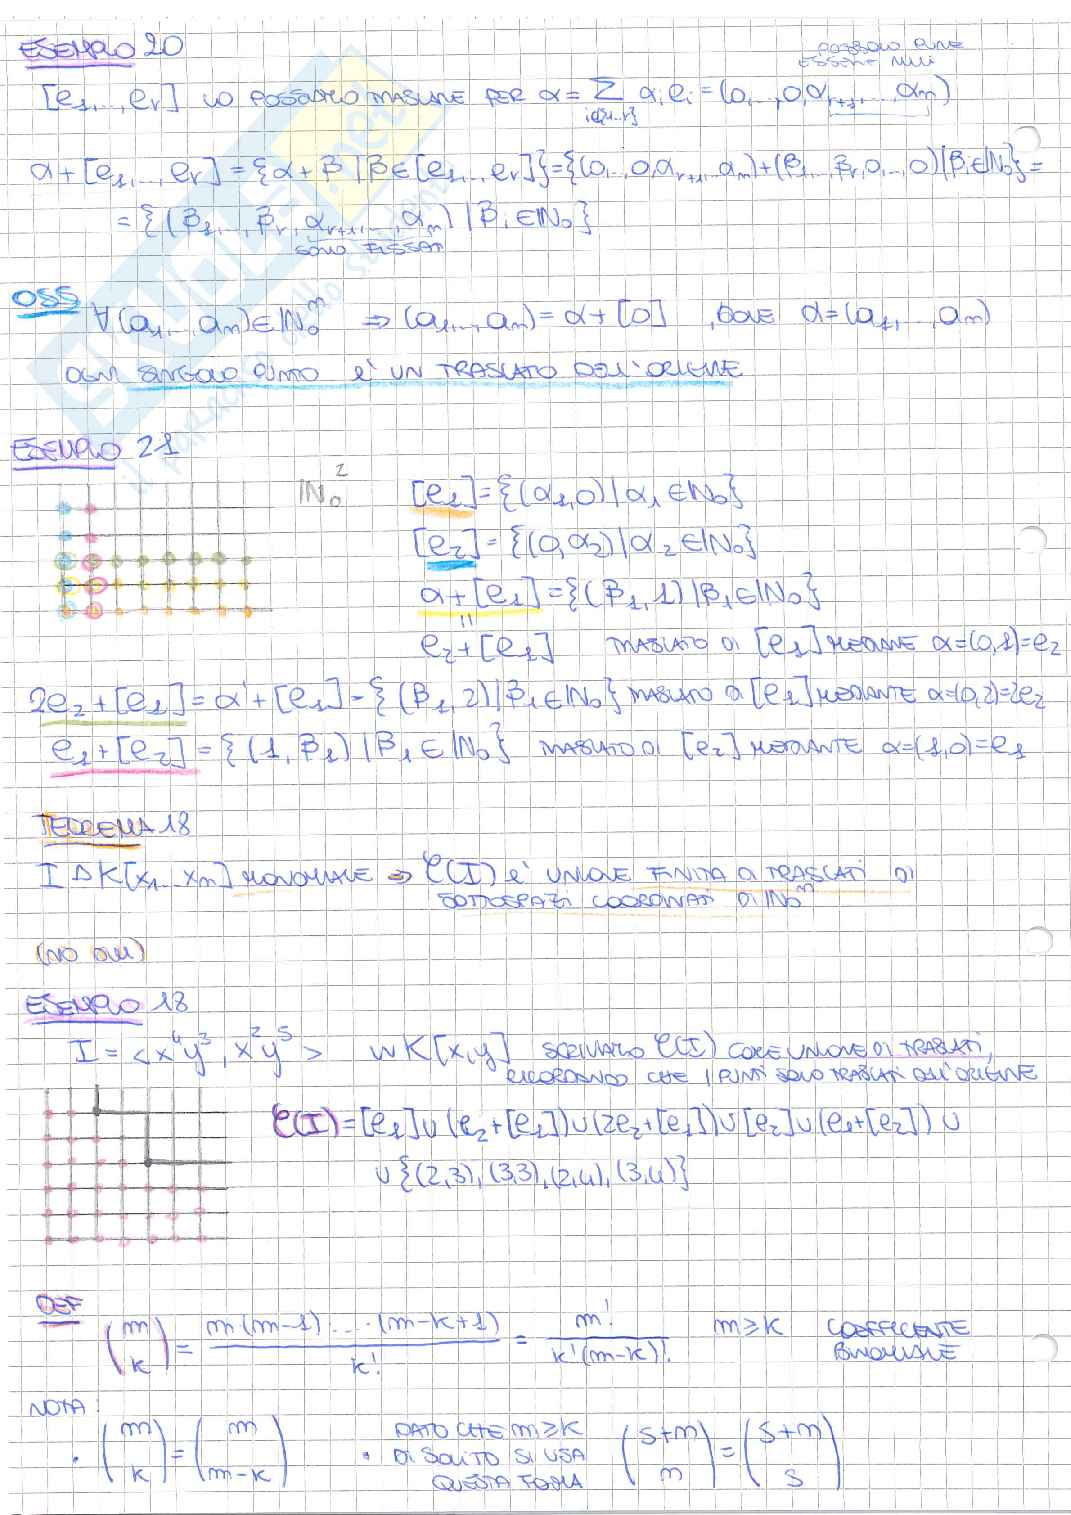 ESEMPIO 20
POSSONO PURE
ESSERE NULLI
[e₁,…,eᵣ] LO POSSIAMO TRASLARE PER α = Σ αᵢeᵢ = (0,…,0,αᵣ₊₁,…,αₙ)
α+[e₁,…,eᵣ] = {α+β | β∈[e₁,…,eᵣ]} = {(0,…,0,αᵣ₊₁…αₙ)+(β₁,…,βᵣ,0,…,0) | βᵢ∈ℕ₀} =
= {(β₁,…,βᵣ,αᵣ₊₁,…,αₙ) | βᵢ∈ℕ₀}
SONO FISSATI
OSS
∀(a₁,…,aₙ)∈ℕ₀ⁿ ⇒ (a₁,…,aₙ) = α+[0] , DOVE α=(a₁,…,aₙ)
OGNI SINGOLO PUNTO E' UN TRASLATO DELL'ORIGINE
ESEMPIO 21
ℕ₀²
[e₁] = {(α₁,0) | α₁∈ℕ₀}
[e₂] = {(0,α₂) | α₂∈ℕ₀}
α+[e₁] = {(β₁,1) | β₁∈ℕ₀}
=
e₂+[e₁] TRASLATO DI [e₁] MEDIANTE α=(0,1)=e₂
2e₂+[e₁] = α'+[e₁] = {(β₁,2) | β₁∈ℕ₀} TRASLATO DI [e₁] MEDIANTE α=(0,2)=2e₂
e₁+[e₂] = {(1,β₁) | β₁∈ℕ₀} TRASLATO DI [e₂] MEDIANTE α=(1,0)=e₁
TEOREMA 18
I ⊴ K[x₁…xₙ] MONOMIALE ⇒ C(I) E' UNIONE FINITA DI TRASLATI DI
SOTTOSPAZI COORDINATI DI ℕ₀ⁿ
(NO DIM)
ESEMPIO 18
I = <x⁴y³, x²y⁵> IN K[x,y] SCRIVIAMO C(I) COME UNIONE DI TRASLATI,
RICORDANDO CHE I PUNTI SONO TRASLATI DELL'ORIGINE
C(I) = [e₁]∪(e₂+[e₁])∪(2e₂+[e₁])∪[e₂]∪(e₁+[e₂]) ∪
∪{(2,3),(3,3),(2,4),(3,4)}
DEF
(m k) = m(m-1)·…·(m-k+1) / k! = m! / k!(m-k)! m≥k COEFFICENTE
BINOMIALE
NOTA:
· (m k) = (m m-k) · DATO CHE m≥k
DI SOLITO SI USA
QUESTA FORMA
(s+m m) = (s+m s)